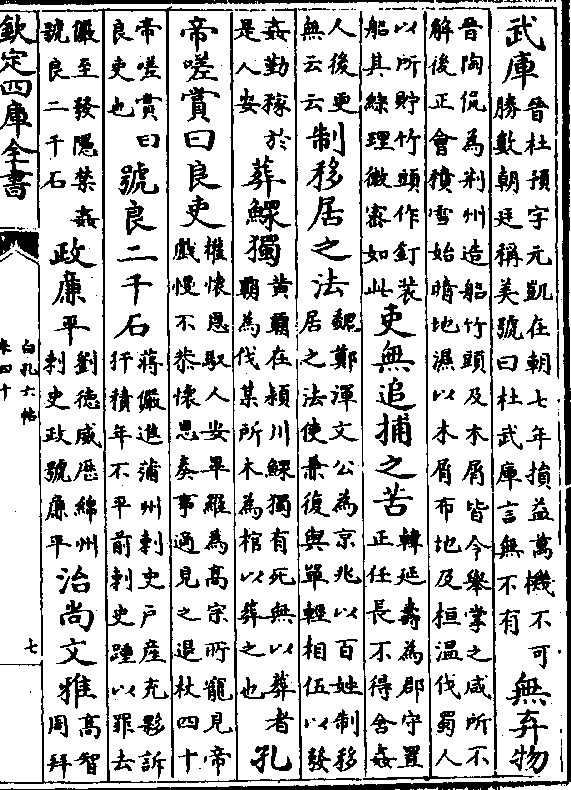 武庫晉杜預字元凱在朝七年損益萬機不可勝數朝廷稱美號曰杜武庫言無不有無弃物
晉陶侃為荆州造船竹頭及木屑皆令舉掌之咸所不解後正會積雪始晴地濕以木屑布地及桓温伐蜀人
以所貯竹頭作釘装船其綜理微宻如此吏無追捕之苦韓延壽為郡守置正任長不得舍姦
人後更無云云制移居之法魏鄭渾文公為京兆以百姓制移居之法使兼復與單輕相伍以發
姦勤稼於是人安葬鰥獨黄霸在潁川鰥獨有死無以葬者霸為伐某所木為棺以葬之也孔
帝嗟賞曰良吏權懷恩馭人安畢羅為高宗所寵見帝戲慢不恭懷恩奏事適見之退杖四十
帝嗟賞曰良吏也號良二千石蔣儼進蒲州刺史戸産充夥訴犴積年不平前刺史踵以罪去
儼至發隱禁姦號良二千石政廉平劉德威歴綿州刺史政號廉平治尚文雅高智周拜
欽定四庫全書
白孔六帖
卷四十
七